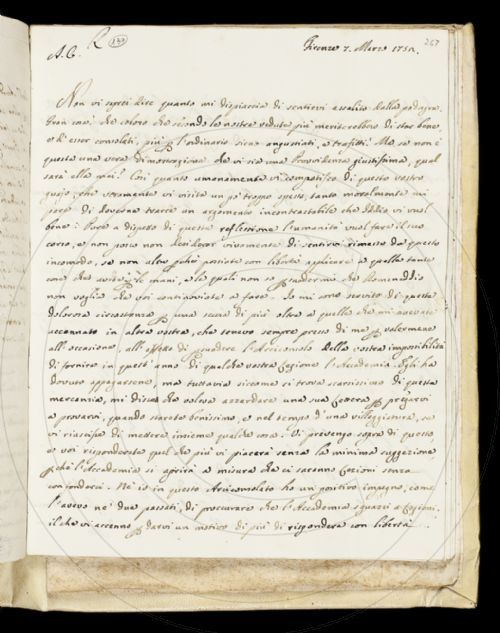 A. C. R 130 Firenze 7. Marzo 1751. 267
Non vi saprei dire quanto mi dispiaccia di sentirvi assalito dalla podagra.
Gran cosa! che coloro che secondo le nostre vedute più meriterebbero di star bene,
e d'esser consolati, più per l'ordinario sieno angustiati, e trafitti. Ma se non è
questa una vera dimostrazione che vi sia una Providenza giustissima, qual
sarà ella mai? Con quanto umanamente vi compatisco di questo vostro
che veramente vi visita un po' troppo spesso, tanto moralmente mi
pare di doverne trarre un argomento incontrastabile che Iddio vi vuol
bene: Pure a dispetto di queste reflessione l'umanità vuol fare il suo
corso, e non posso non desiderar vivamente di sentirvi rimesso da questo
incomodo, se non altro perchè possiate con libertà applicare a quelle tante
cose che avete per le mani, e le quali non so per che Domeneddio
non voglia che voi continoviate a fare. Io mi sono servito di questa
dolorosa circostanza per una scusa di più oltre a quelle che mi avevate
accennato in altra vostra, che tenevo sempre presso di me per valermene
all'occasione, all'effetto di persuadere l'Arciconsolo della vostra impossibilità
di fornire in quest'anno di qualche vostra Lezione l'Accademia. Egli ha
dovuto appagarsene, ma tuttavia siccome si trova scarsissimo di questa
mercanzia, mi disse che voleva azzardare una sua Lettera per pregarvi
a provarvi, quando starete benissimo, e nel tempo d'una villeggiatura, se
vi riuscisse di mettere insieme qualche cosa. Vi prevengo sopra di questo,
e voi risponderete quel che più vi piacerà senza la minima suggezione
perchè l'Accademia si aprirà a misura che ci saranno Lezioni senza
confonderci. Nè io in questo Arciconsolato ho un positivo impegno, come
l'avevo ne' due passati, di procurare che l'Accademia sguazzi a Lezioni,
il che vi accenno per darvi un motivo di più di rispondere con libertà.